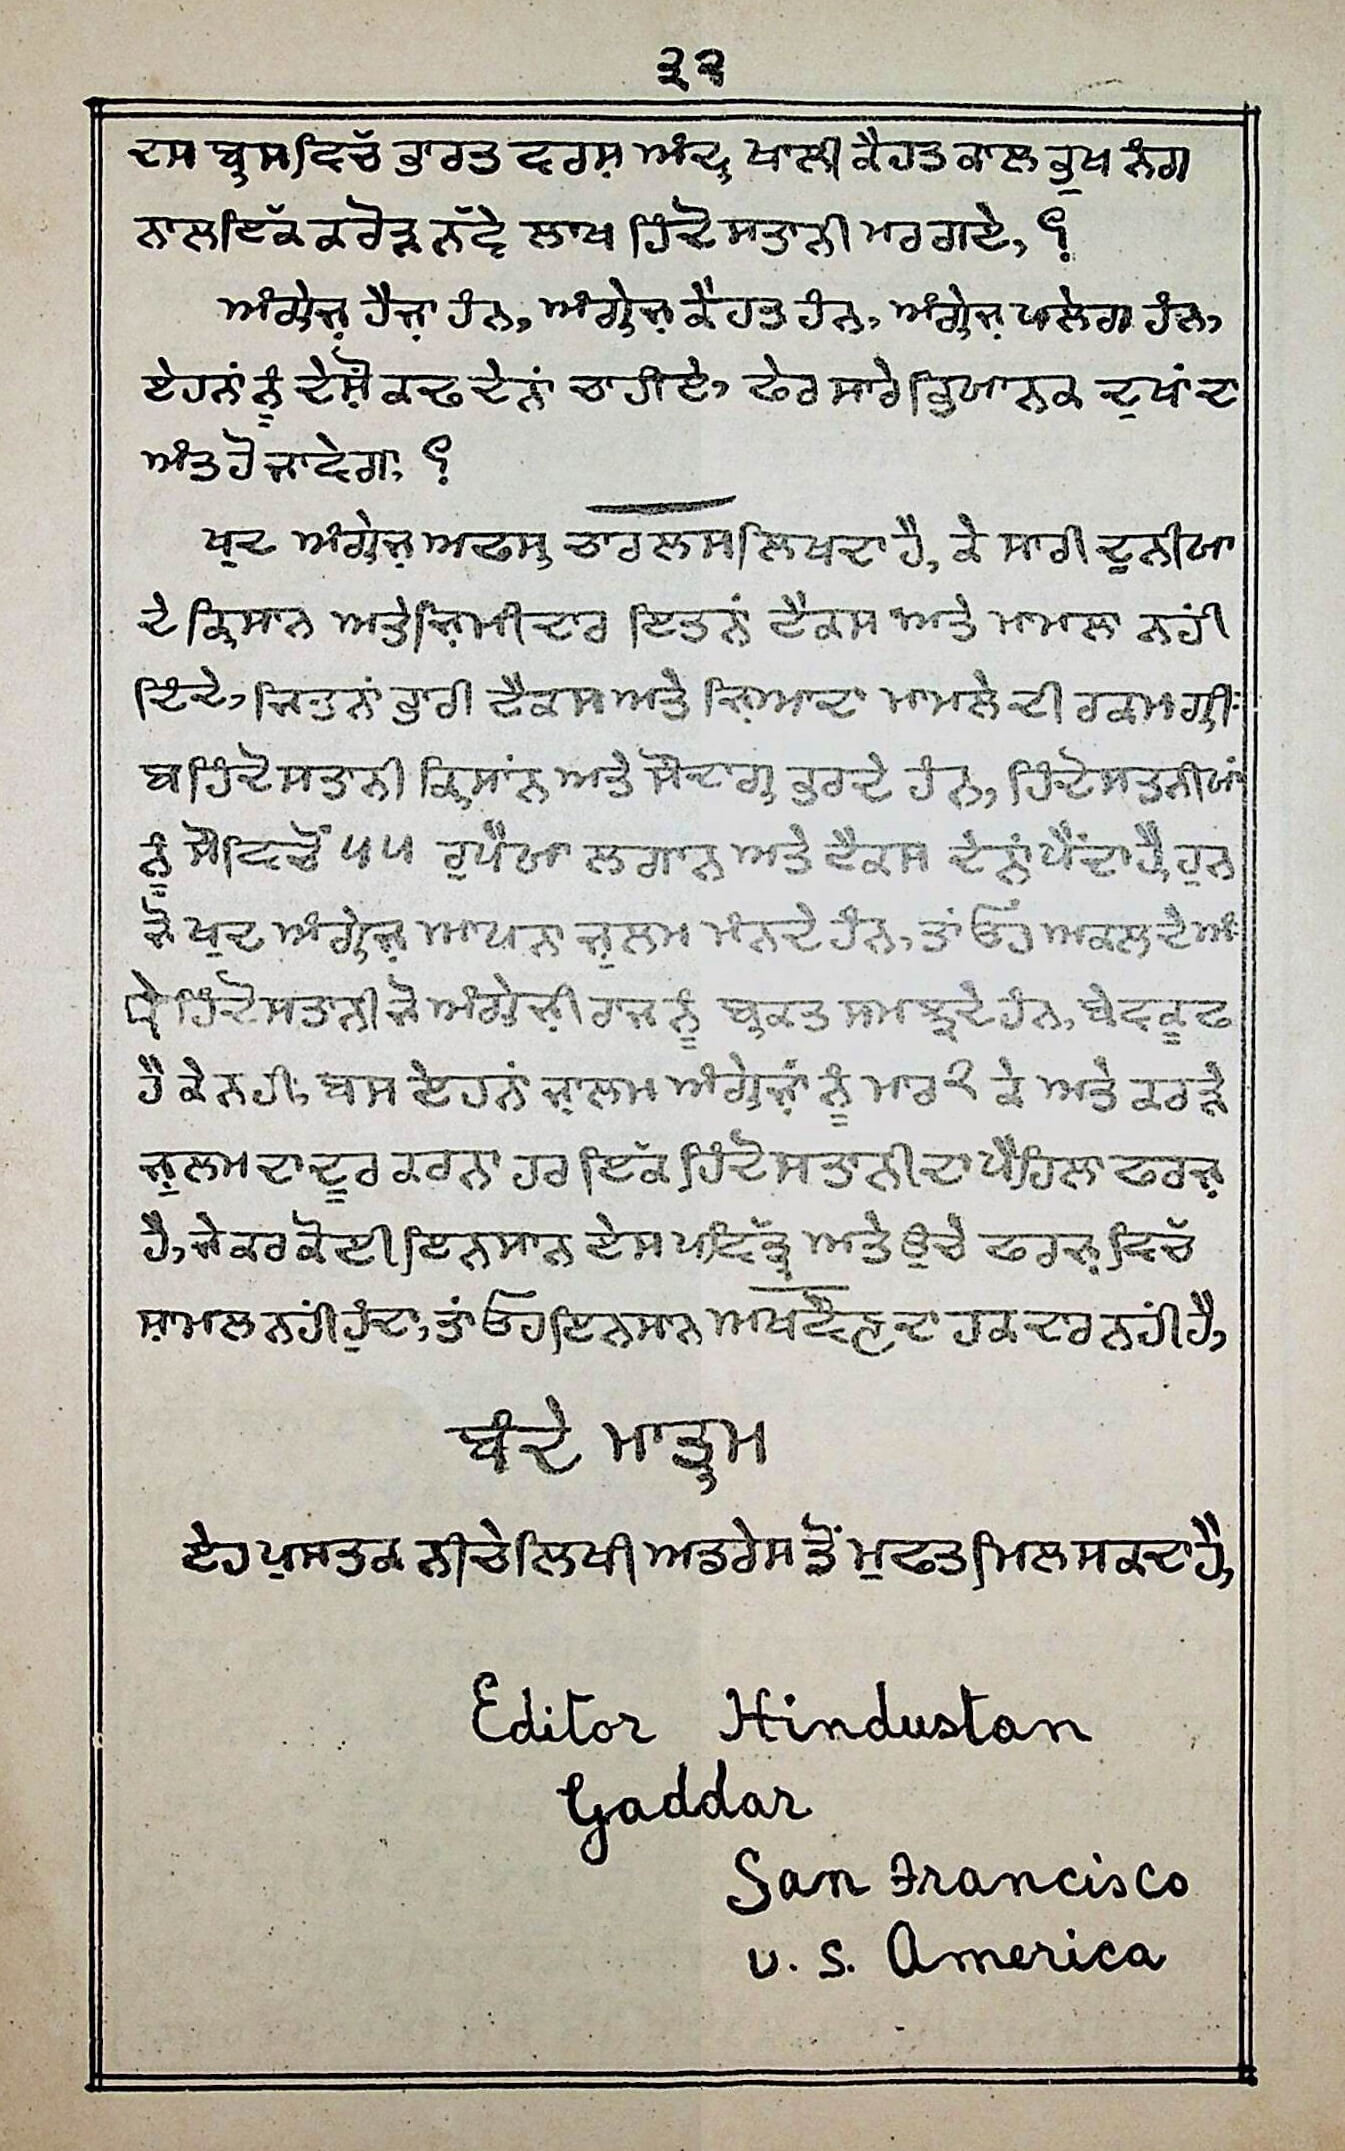 ੩੨
ਦਸ ਬ੍ਰਸ ਵਿਚੱ ਭਾਰਤ ਵਰਸ਼ ਅੰਦ੍ਰ ਖਾਲੀ ਕੈਹਤ ਕਾਲ ਭੁਖ ਨੰਗ
ਨਾਲ ਇੱਕ ਕਰੋੜ ਨੱਵੇ ਲਾਖ ਹਿੰਦੋਸਤਾਨੀ ਮਰ ਗਏ,
ਅੰਗ੍ਰੇਜ਼ ਹੈਜ਼ਾ ਹੰਨ, ਅੰਗ੍ਰੇਜ਼ ਕੈਹਤ ਹੰਨ, ਅੰਗ੍ਰੇਜ਼ ਪਲੇਗ ਹੰਨ,
ਏਹਨਾਂ ਨੂੰ ਦੇਸ਼ੋਂ ਕਢ ਦੇਨਾਂ ਚਾਹੀਏ, ਫੇਰ ਸਾਰੇ ਭਿਯਾਨਕ ਦੁਖਾਂ ਦਾ
ਅੰਤ ਹੋ ਜਾਵੇਗਾ,
ਖੁਦ ਅੰਗ੍ਰੇਜ਼ ਅਫਸ੍ਰ ਚਾਰਲਸ ਲਿਖਦਾ ਹੈ, ਕੇ ਸਾਰੀ ਦੁਨੀਯਾ
ਦੇ ਕ੍ਰਿਸਾਨ ਅਤੇ ਜ਼ਿਮੀਦਾਰ ਇਤਨਾਂ ਟੈਕਸ ਅਤੇ ਮਾਮਲਾ ਨਹੀਂ
ਦਿੰਦੇ, ਜਿਤਨਾਂ ਭਾਰੀ ਟੈਕਸ ਅਤੇ ਜ਼ਿਆਦਾ ਮਾਮਲੇ ਦੀ ਰਕਮ ਗ੍ਰੀ
ਬ ਹਿੰਦੋਸਤਾਨੀ ਕ੍ਰਿਸਾਂਨ ਅਤੇ ਸੌਦਾਗ੍ਰ ਭਰਦੇ ਹੰਨ, ਹਿੰਦੋਸਤਨੀਯਾਂ
ਨੂੰ ਸੌ ਵਿਚੋਂ ੫੫ ਰੁਪੈਯਾ ਲਗਾਨ ਅਤੇ ਟੈਕਸ ਦੇਨਾਂ ਪੈਂਦਾ ਹੈ, ਹੁਨ
ਜੋ ਖੁਦ ਅੰਗ੍ਰੇਜ਼ ਆਪਨਾ ਜ਼ੁਲਮ ਮੰਨਦੇ ਹੰਨ, ਤਾਂ ਓਹ ਅਕਲ ਦੇ ਅੰ
ਧੇ ਹਿੰਦੋਸਤਾਨੀ ਜੋ ਅੰਗ੍ਰੇਜ਼ੀ ਰਾਜ ਨੂੰ ਬ੍ਰਕਤ ਸਮਝਦੇ ਹੰਨ, ਬੇਵਕੂਫ
ਹੈ ਕੇ ਨਹੀ, ਬਸ ਏਹਨਾਂ ਜ਼ਾਲਮ ਅੰਗ੍ਰੇਜ਼ਾਂ ਨੂੰ ਮਾਰ ੨ ਕੇ ਅਤੇ ਕਰੜੇ
ਜ਼ੁਲਮ ਦਾ ਦੂਰ ਕਰਨਾ ਹਰ ਇੱਕ ਹਿੰਦੋਸਤਾਨੀ ਦਾ ਪੈਹਿਲਾ ਫਰਜ਼
ਹੈ, ਜੇਕਰ ਕੋਈ ਇਨਸਾਨ ਏਸ ਪਵਿੱਤ੍ਰ ਅਤੇ ਉਚੇ ਫਰਜ਼ ਵਿਚੱ
ਸ਼ਾਮਲ ਨਹੀਂ ਹੁੰਦਾ, ਤਾਂ ਓਹ ਇਨਸਾਨ ਅਖਵੌਣ ਦਾ ਹਕਦਾਰ ਨਹੀਂ ਹੈ,
ਬੰਦੇ ਮਾਤ੍ਰਮ
ਏਹ ਪੁਸਤਕ ਨੀਚੇ ਲਿਖੀ ਅਡਰੇਸ ਤੋਂ ਮੁਫਤ ਮਿਲ ਸਕਦਾ ਹੈ,
Editor Hindustan
Gaddar
San Francisco
U. S. America